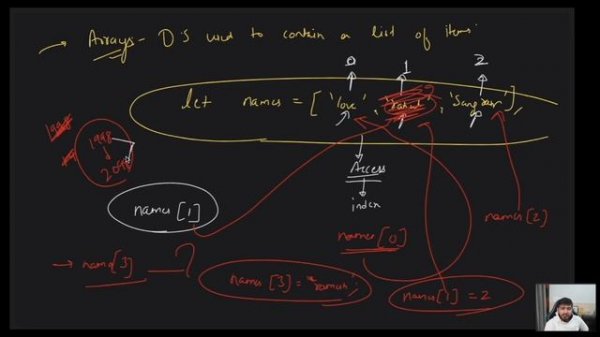 → Arrays - D.S used to contain a list of items
0 1 2
let names = ['love', 'rahul', 'Sangram'],
1998
2098
Access
index
names[1]
names[2]
names[0]
→ name[3] ?
names[3] = "raman";
names[1] = 2